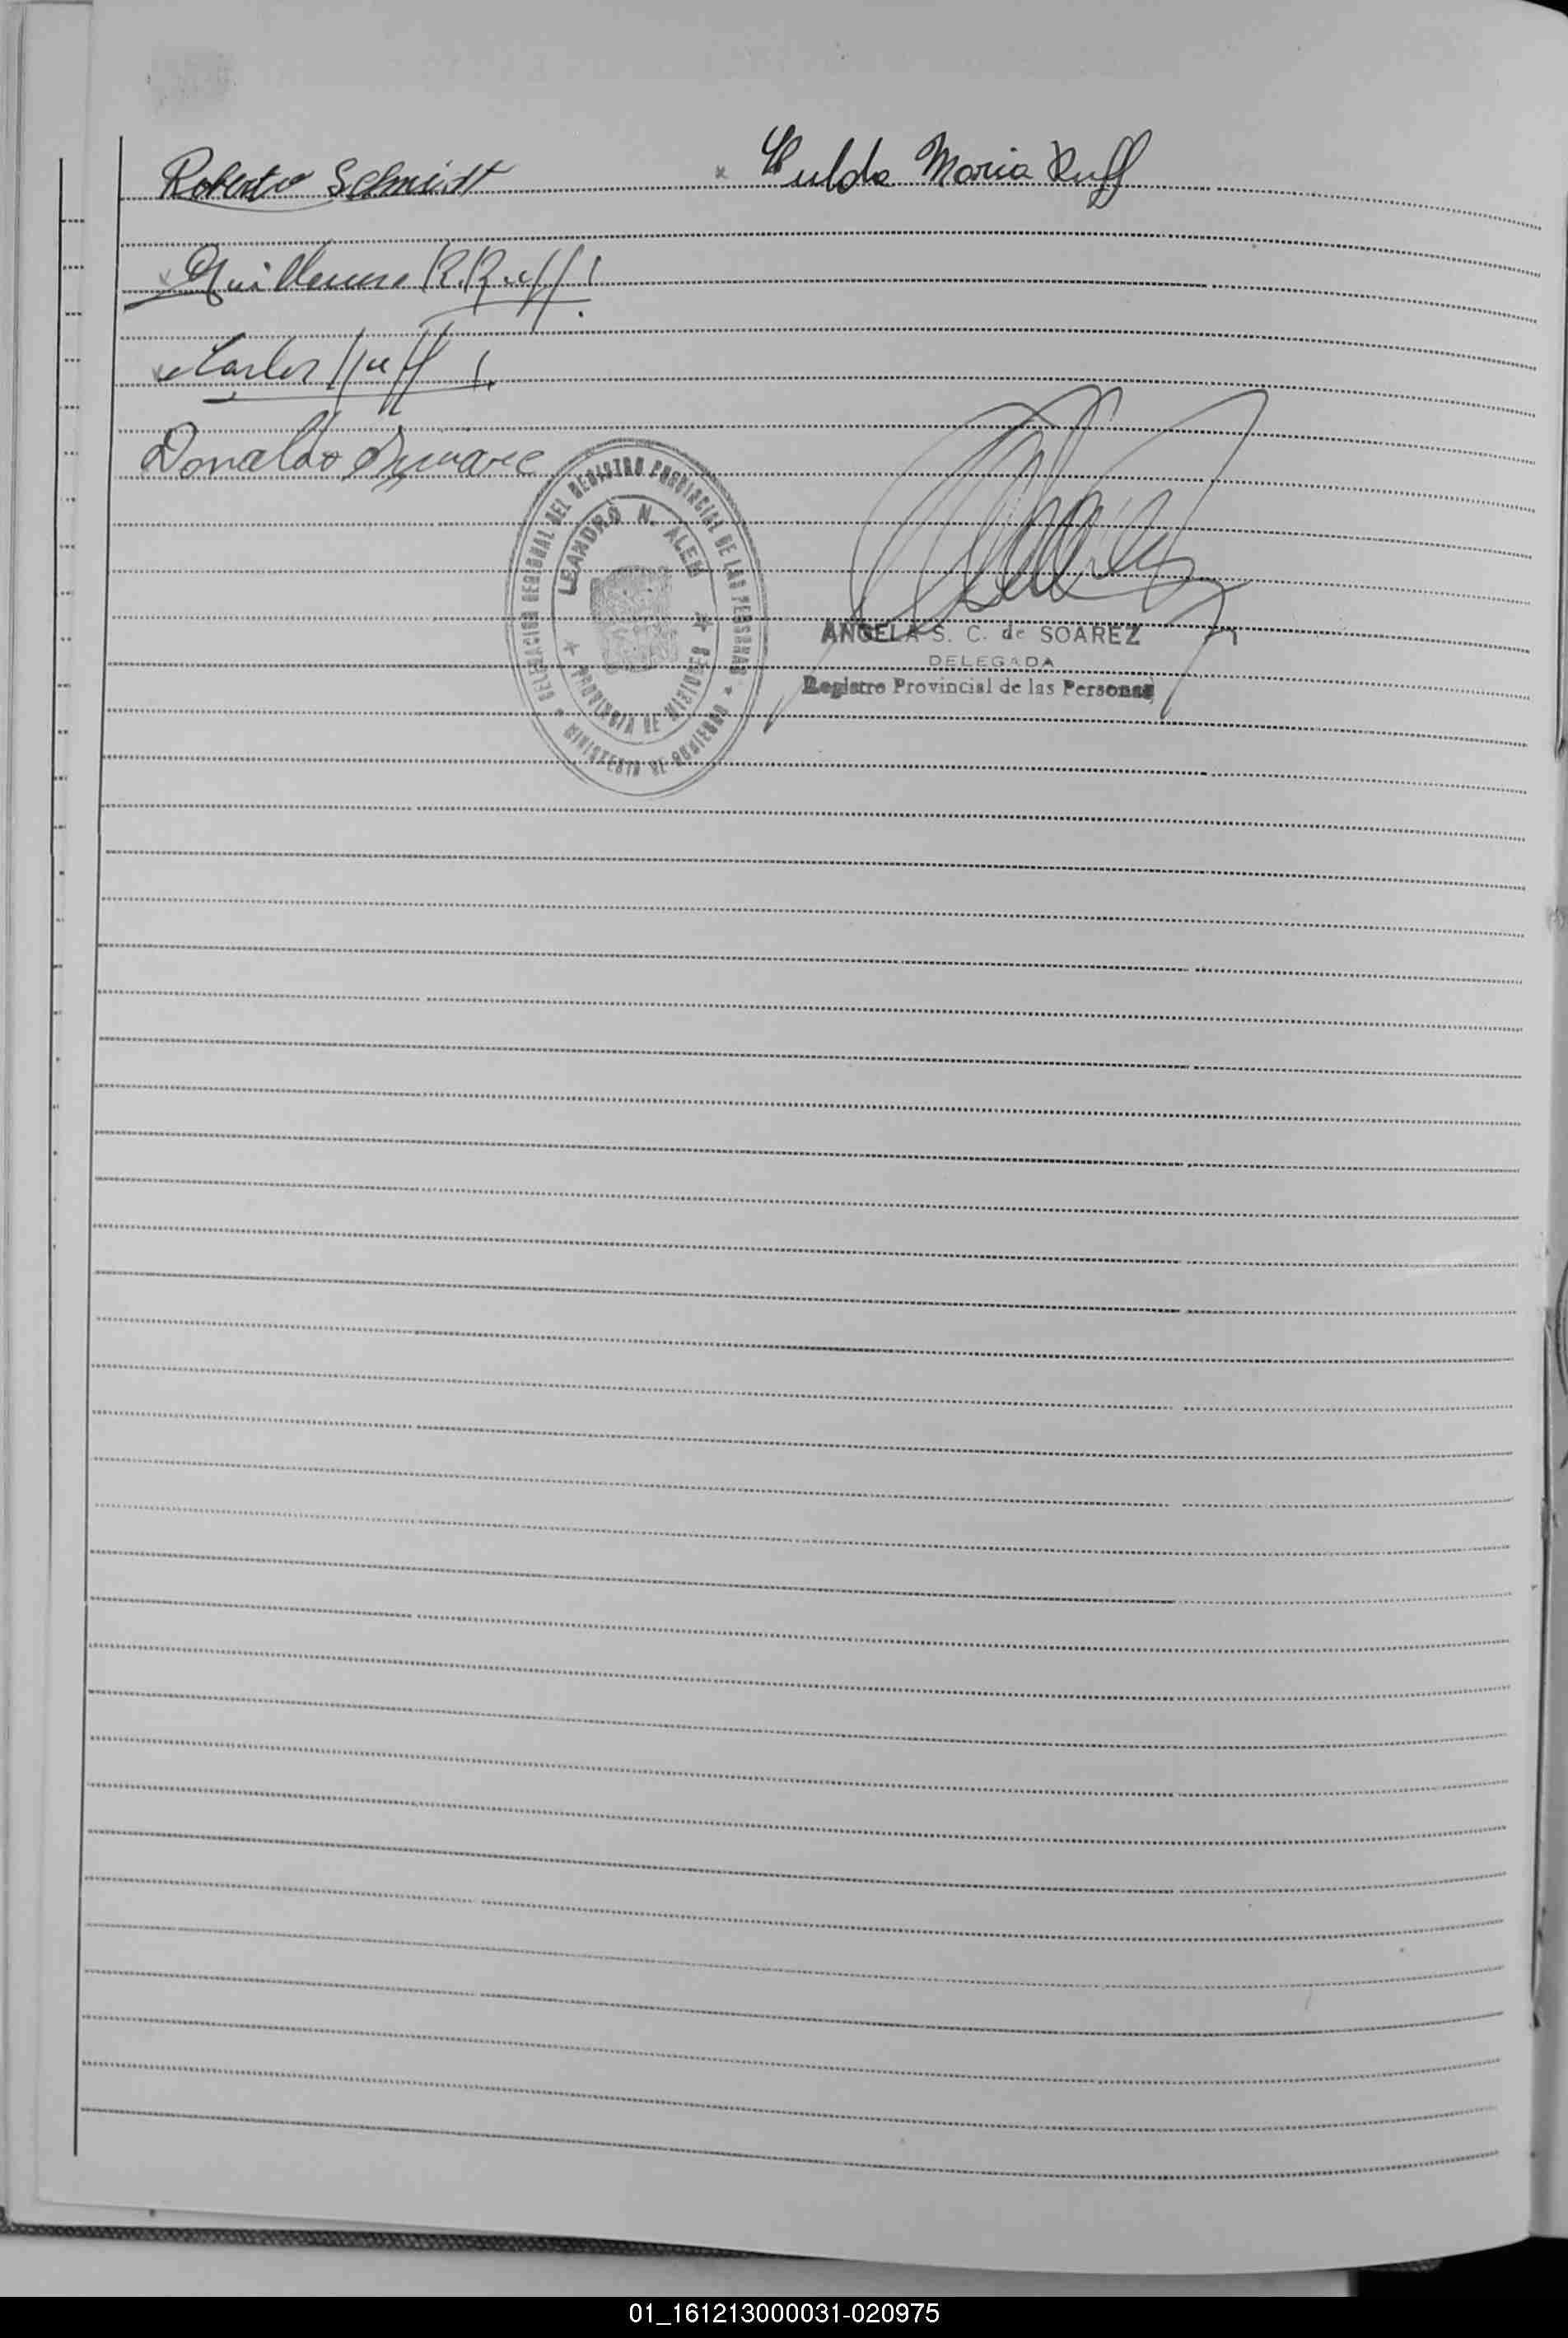 Roberto Schmidt
Hulda Maria Ruff
Guillermo R. Ruff
Carlos Ruff
Donaldo
DELEGACION REGIONAL DEL REGISTRO PROVINCIAL DE LAS PERSONAS
* MINISTERIO DE GOBIERNO *
LEANDRO N. ALEM
* PROVINCIA DE MISIONES *
ANGELA S. C. de SOAREZ
DELEGADA
Registro Provincial de las Personas
01_161213000031-020975